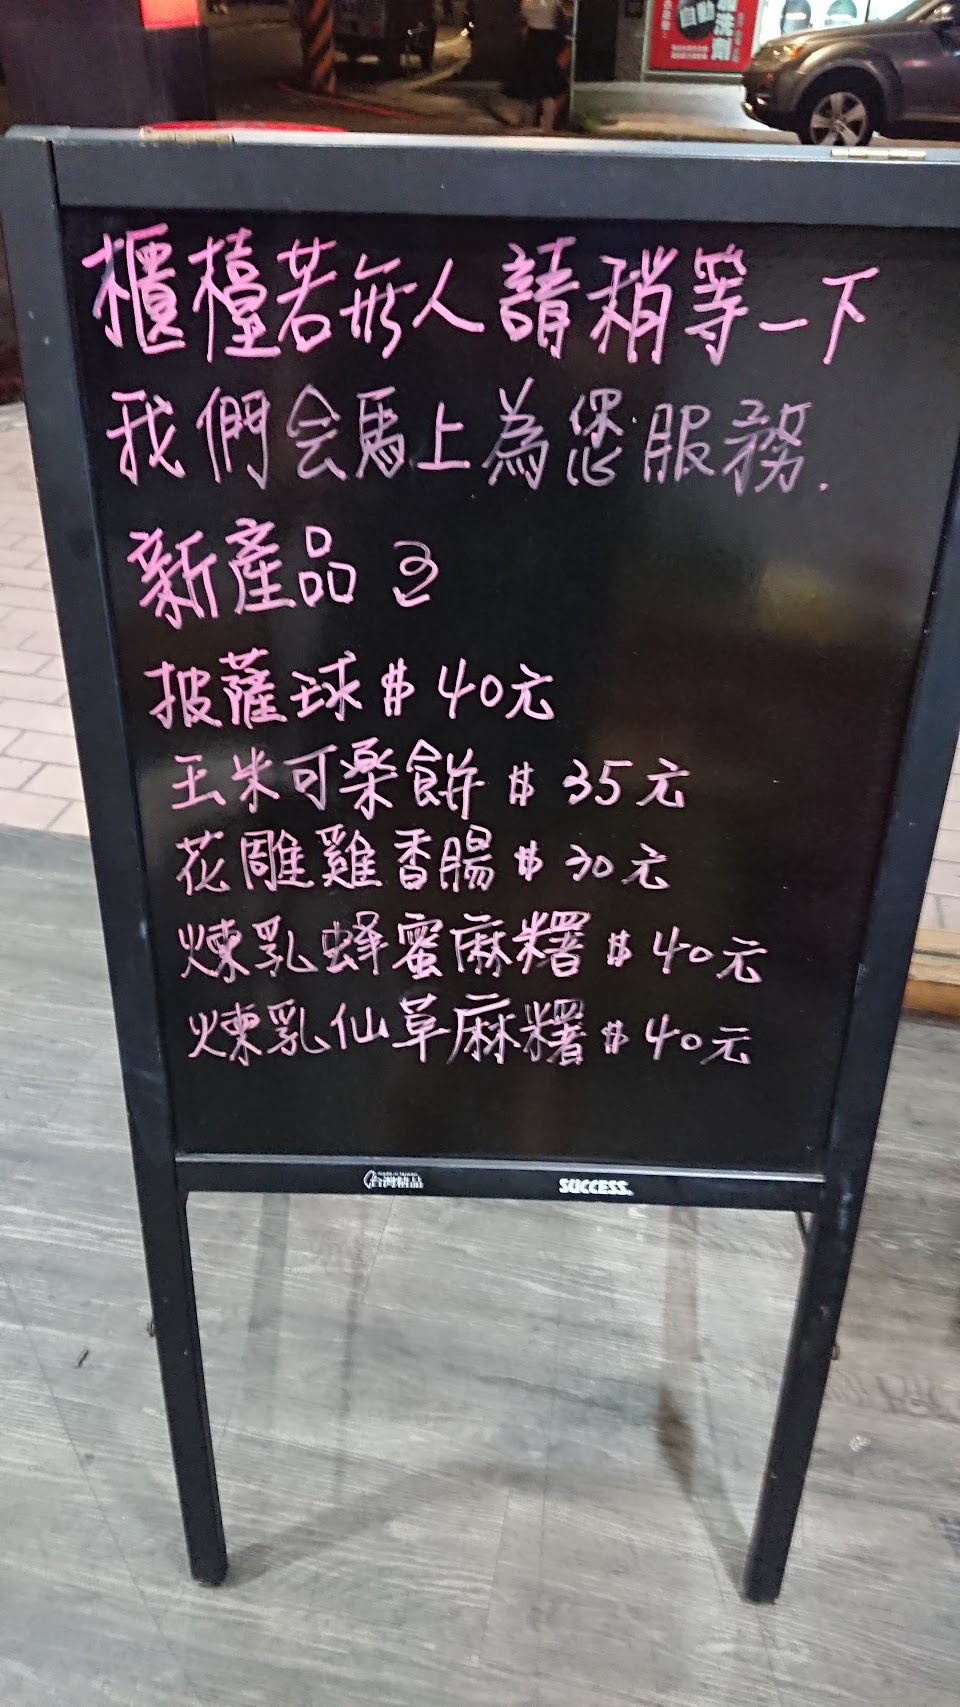 自動
洗劑
櫃檯若無人請稍等一下
我們会馬上為您服務.
新產品
披薩球$40元
玉米可樂餅$35元
花雕雞香腸$30元
煉乳蜂蜜麻糬$40元
煉乳仙草麻糬$40元
MADE IN TAIWAN
台灣精品
SUCCESS.